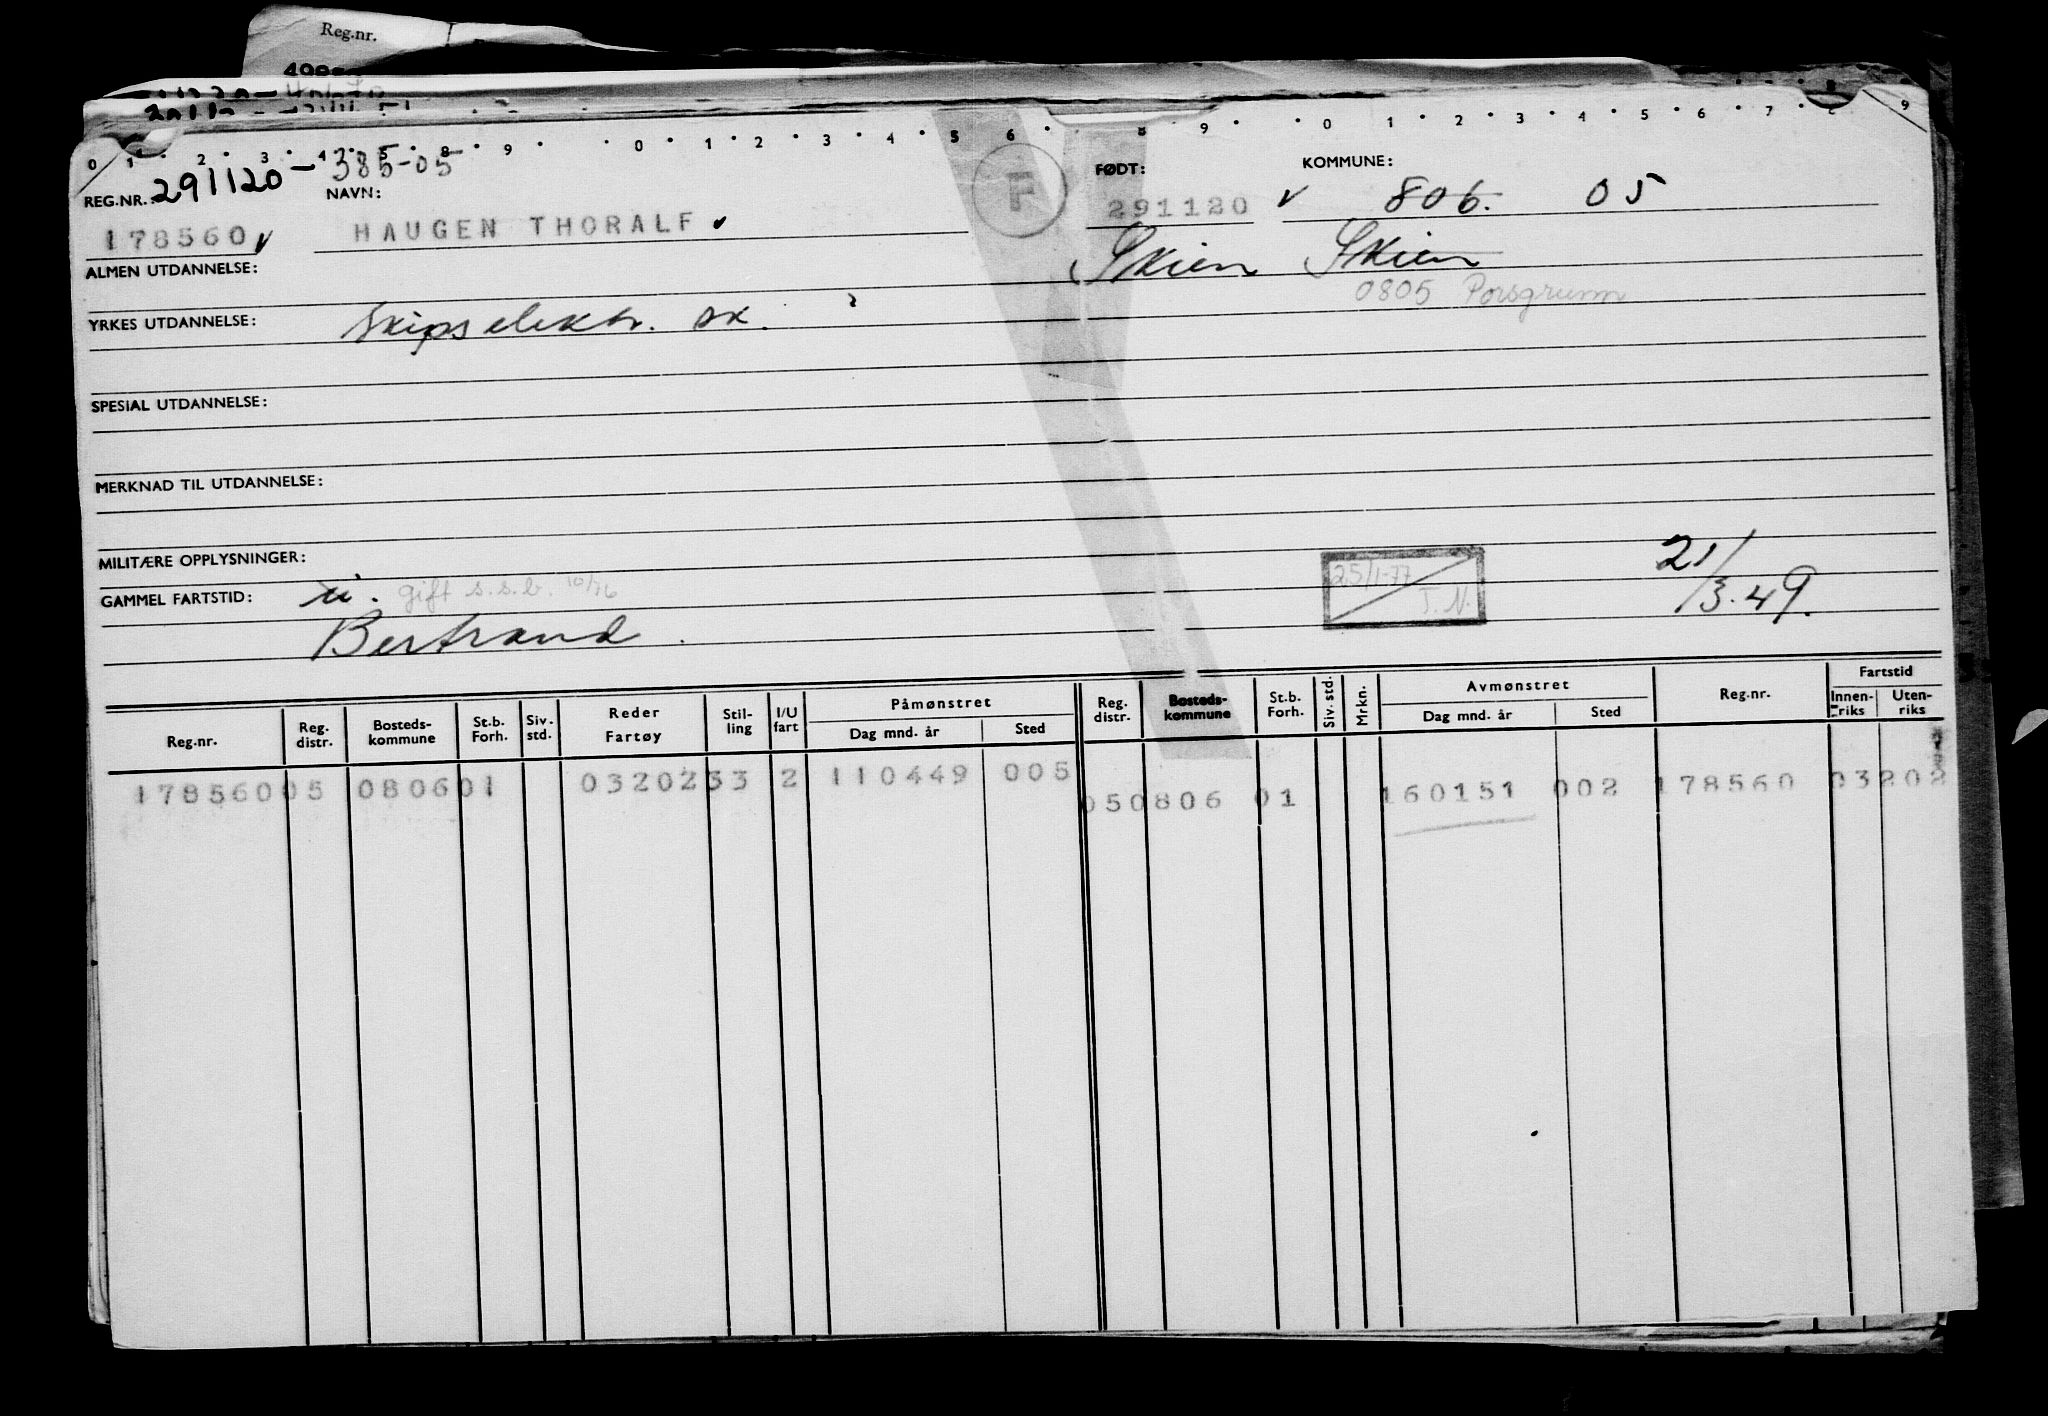 Reg.nr.
0 1 2 3 4 5 8 9 0 1 2 3 4 5 6 8 9 0 1 2 3 4 5 6 7 9
291120-385-05
REG.NR.: NAVN: F FØDT: KOMMUNE:
178560 HAUGEN THORALF 291120 806. 05
Skien Skien
ALMEN UTDANNELSE:
0805 Porsgrunn
YRKES UTDANNELSE: Skipselektr. ex.
SPESIAL UTDANNELSE:
MERKNAD TIL UTDANNELSE:
MILITÆRE OPPLYSNINGER:
25/1-77 T.N. 21/3.49.
GAMMEL FARTSTID: u. gift s.s.b. 10/76
Bertrand.
Reg.nr. Reg. distr. Bosteds-kommune St.b. Forh. Siv. std. Reder Fartøy Stil-ling I/U fart Påmønstret Dag mnd. år Sted Reg. distr. Bosteds-kommune St.b. Forh. Siv. std. Mrkn. Avmønstret Dag mnd. år Sted Reg.nr. Fartstid Innen-riks Uten-riks
178560 05 0806 01 03202 53 2 110449 005 05 0806 01 160151 002 178560 03202